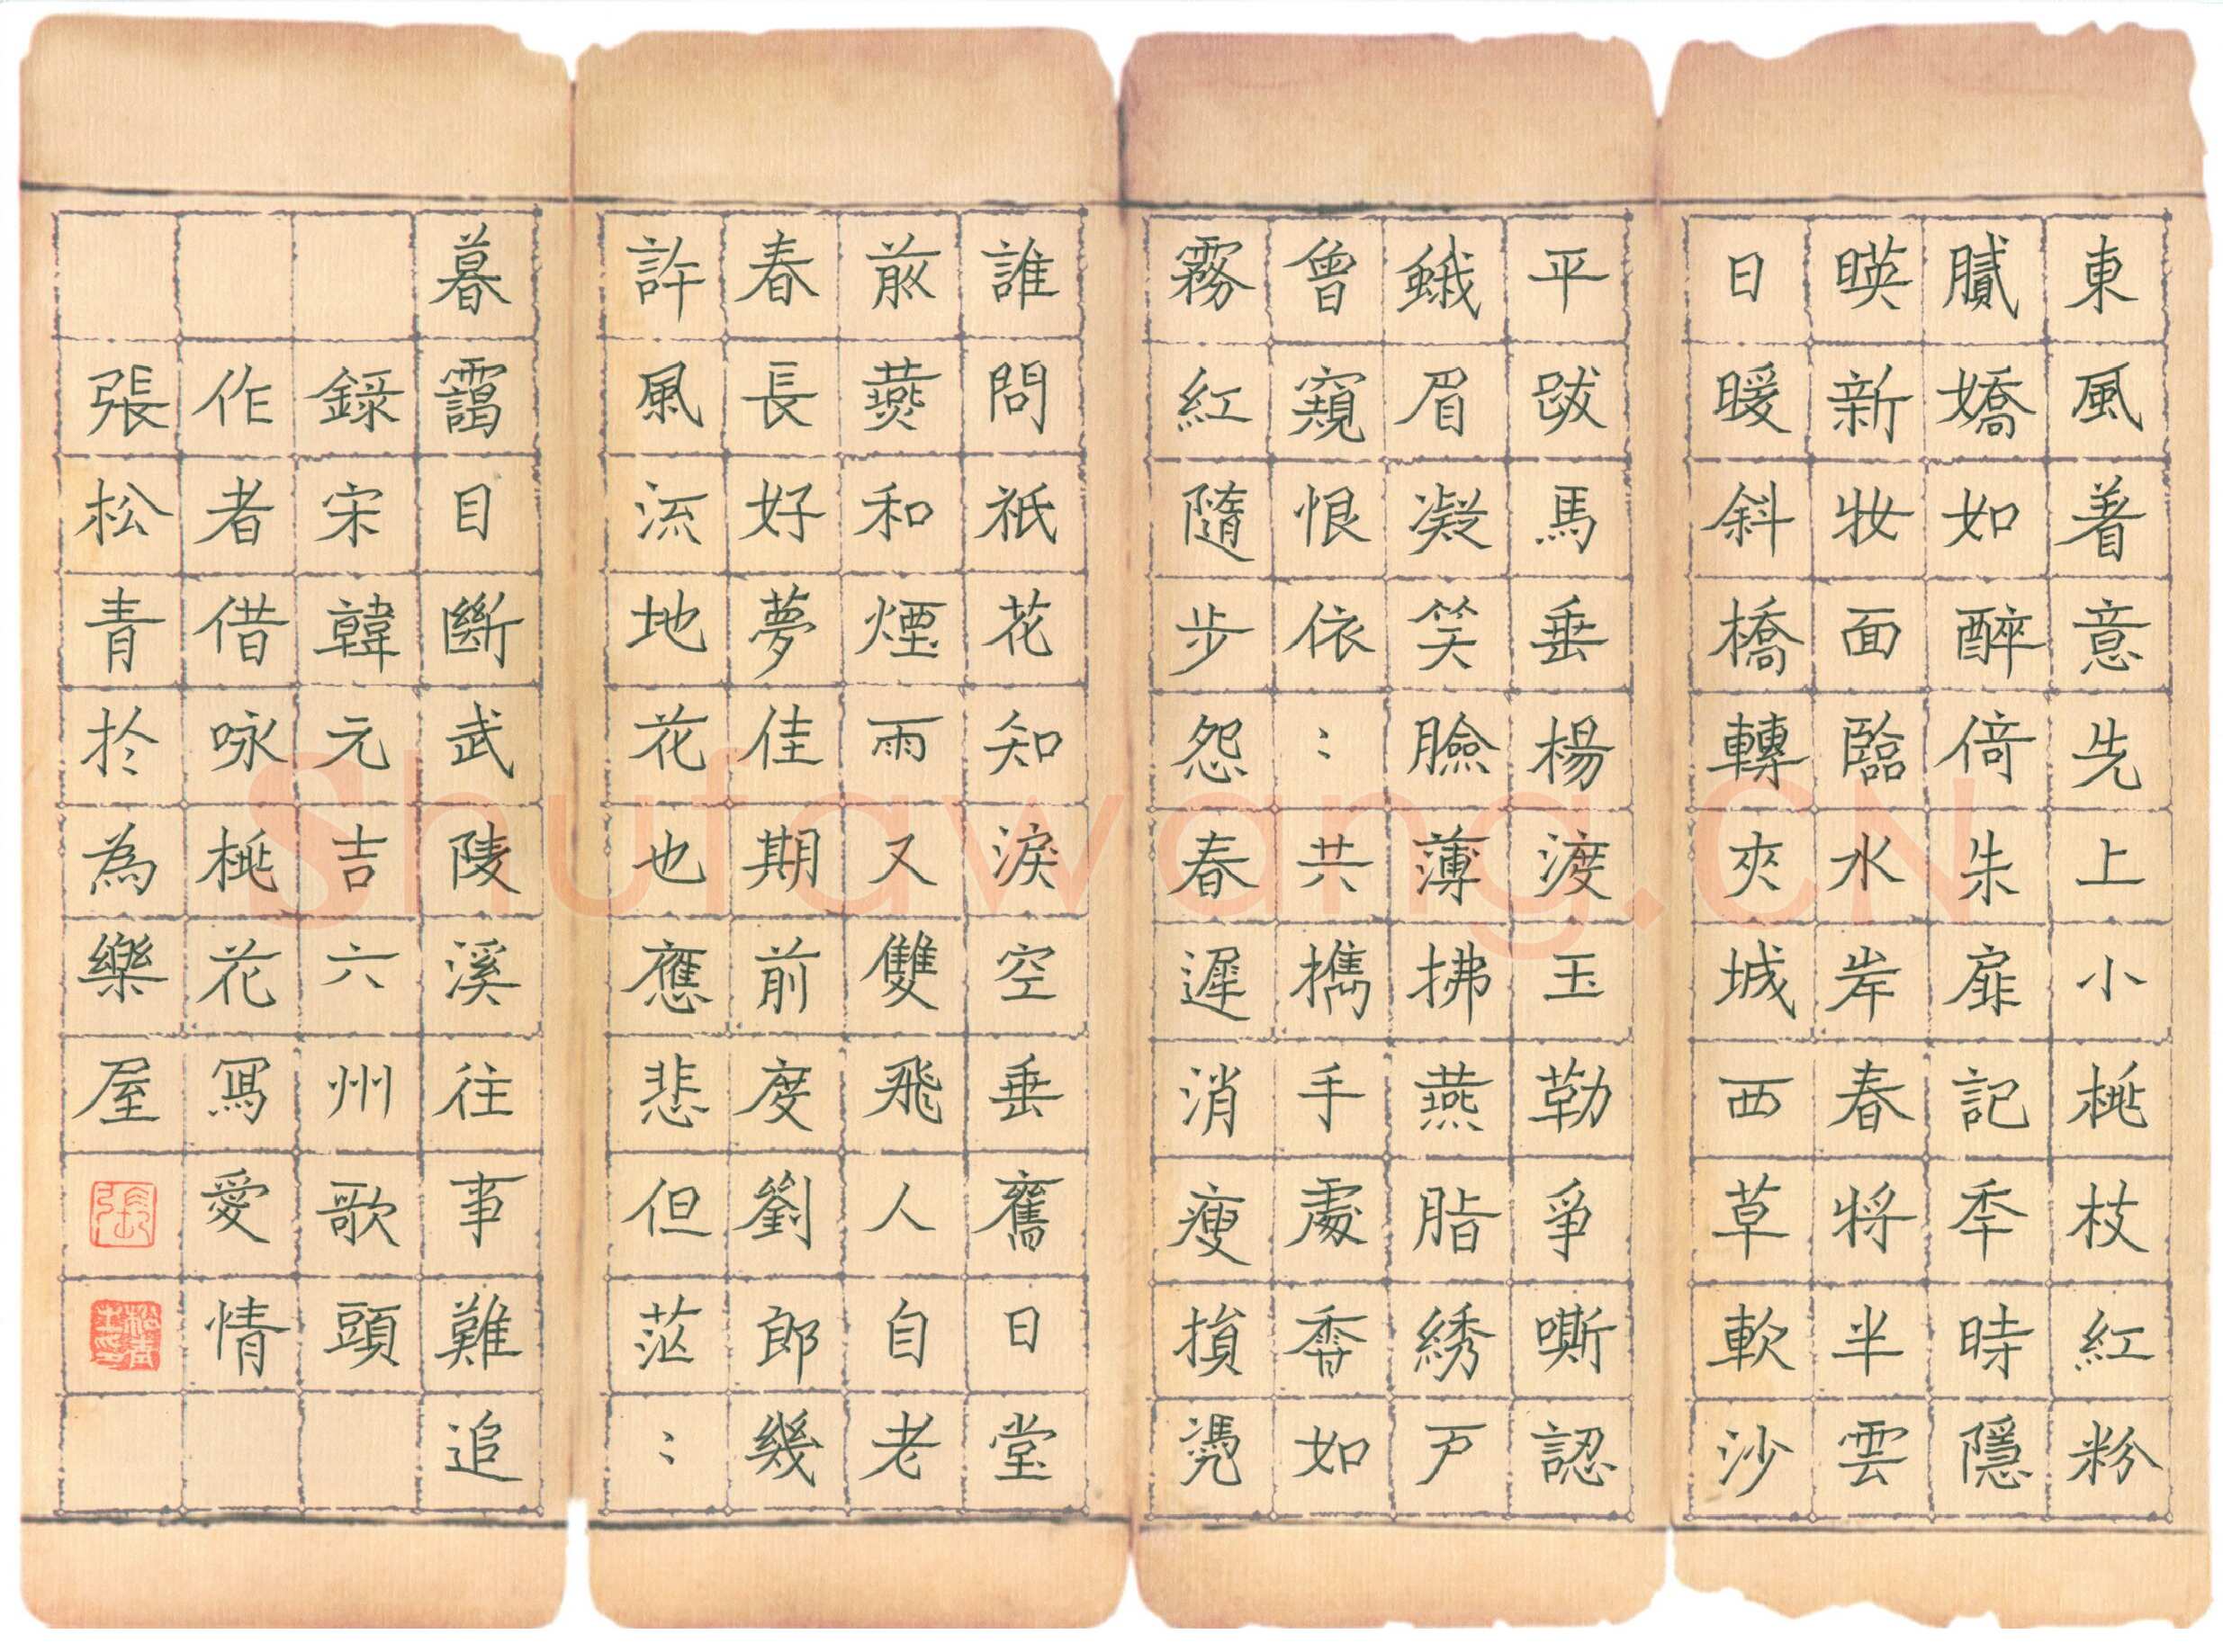 東風着意先上小桃枝紅粉
膩嬌如醉倚朱扉記年時隱
暎新妝面臨水岸春將半雲
日暖斜橋轉夾城西草軟沙
平跋馬垂楊渡玉勒爭嘶認
蛾眉凝笑臉薄拂燕脂綉戶
曾窺恨依：共攜手處香如
霧紅隨步怨春遲消瘦損憑
誰問祇花知淚空垂舊日堂
前燕和煙雨又雙飛人自老
春長好夢佳期前度劉郎幾
許風流地花也應悲但茫：
暮靄目斷武陵溪往事難追
錄宋韓元吉六州歌頭
作者借咏桃花寫愛情
張松青於為樂屋
張
Shufawang.CN